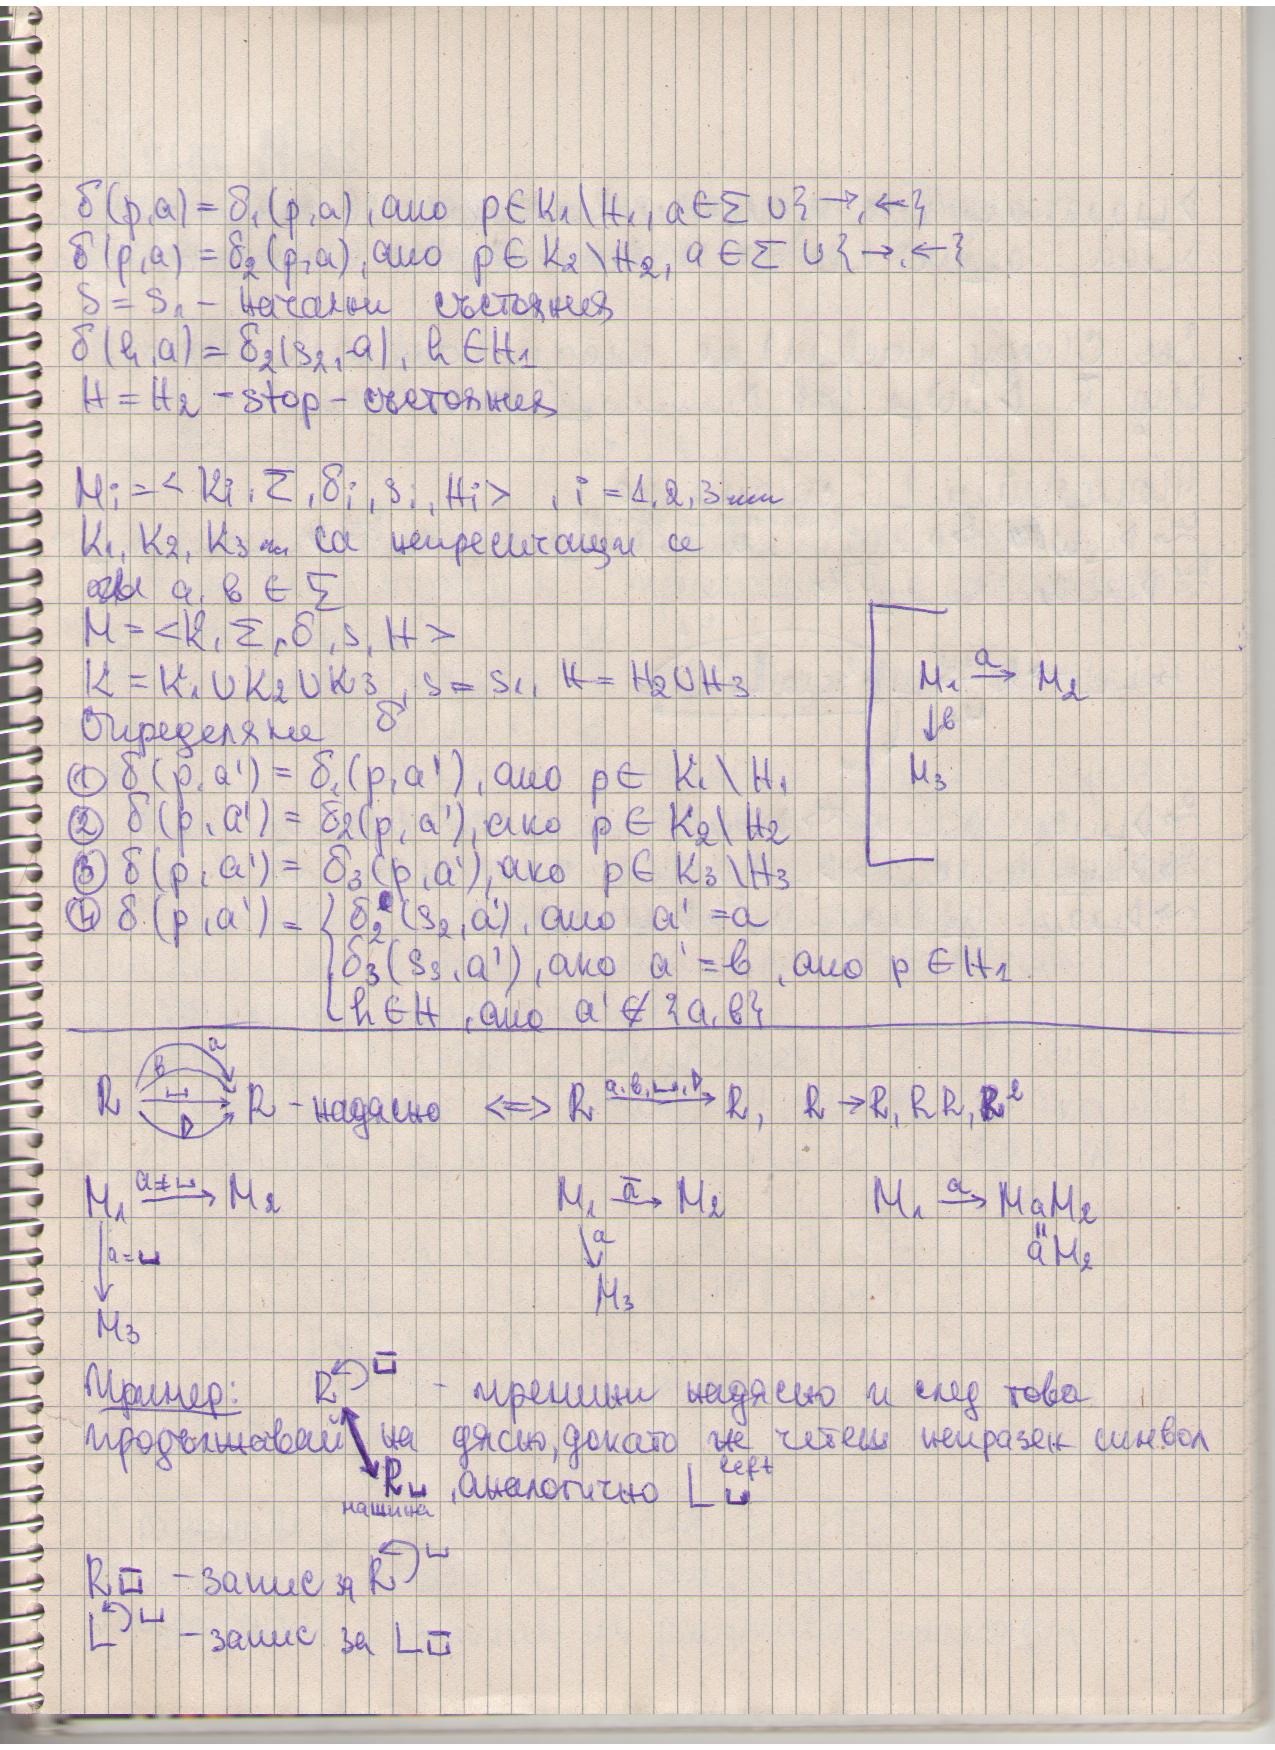 δ(p,a) = δ₁(p,a), ако p∈K₁\H₁, a∈Σ∪{→,←}
δ(p,a) = δ₂(p,a), ако p∈K₂\H₂, a∈Σ∪{→,←}
s = s₁ – начални състояния
δ(h,a) = δ₂(s₂,a), h∈H₁
H = H₂ – stop – състояния
Mᵢ = <Kᵢ, Σ, δᵢ, sᵢ, Hᵢ>, i = 1,2,3
K₁, K₂, K₃ са непресичащи се
a, b ∈ Σ
M = <K, Σ, δ, s, H>
K = K₁∪K₂∪K₃, s = s₁, H = H₂∪H₃
M₁ →ᵃ M₂
↓b
M₃
Определяне δ
① δ(p,a') = δ₁(p,a'), ако p∈ K₁\H₁
② δ(p,a') = δ₂(p,a'), ако p∈ K₂\H₂
③ δ(p,a') = δ₃(p,a'), ако p∈ K₃\H₃
④ δ(p,a') = { δ₂(s₂,a'), ако a' = a
δ₃(s₃,a'), ако a' = b, ако p∈H₁
h∈H, ако a' ∉ {a,b}
a
b
⊔
▷
R → R – надясно <=> R →(a,b,⊔,▷) R, R→R, RR, R²
M₁ →(a≠⊔) M₂ M₁ →(a̅) M₂ M₁ →(a) MaM₂
↓a=⊔ ↓a "
aM₂
M₃ M₃
Пример: R ⊔̅ – премини надясно и след това
продължавай на дясно, докато не четеш непразен символ
R⊔, аналогично L⊔ left
машина
R⊔̅ – запис за R ⊔
L ⊔ – запис за L⊔̅